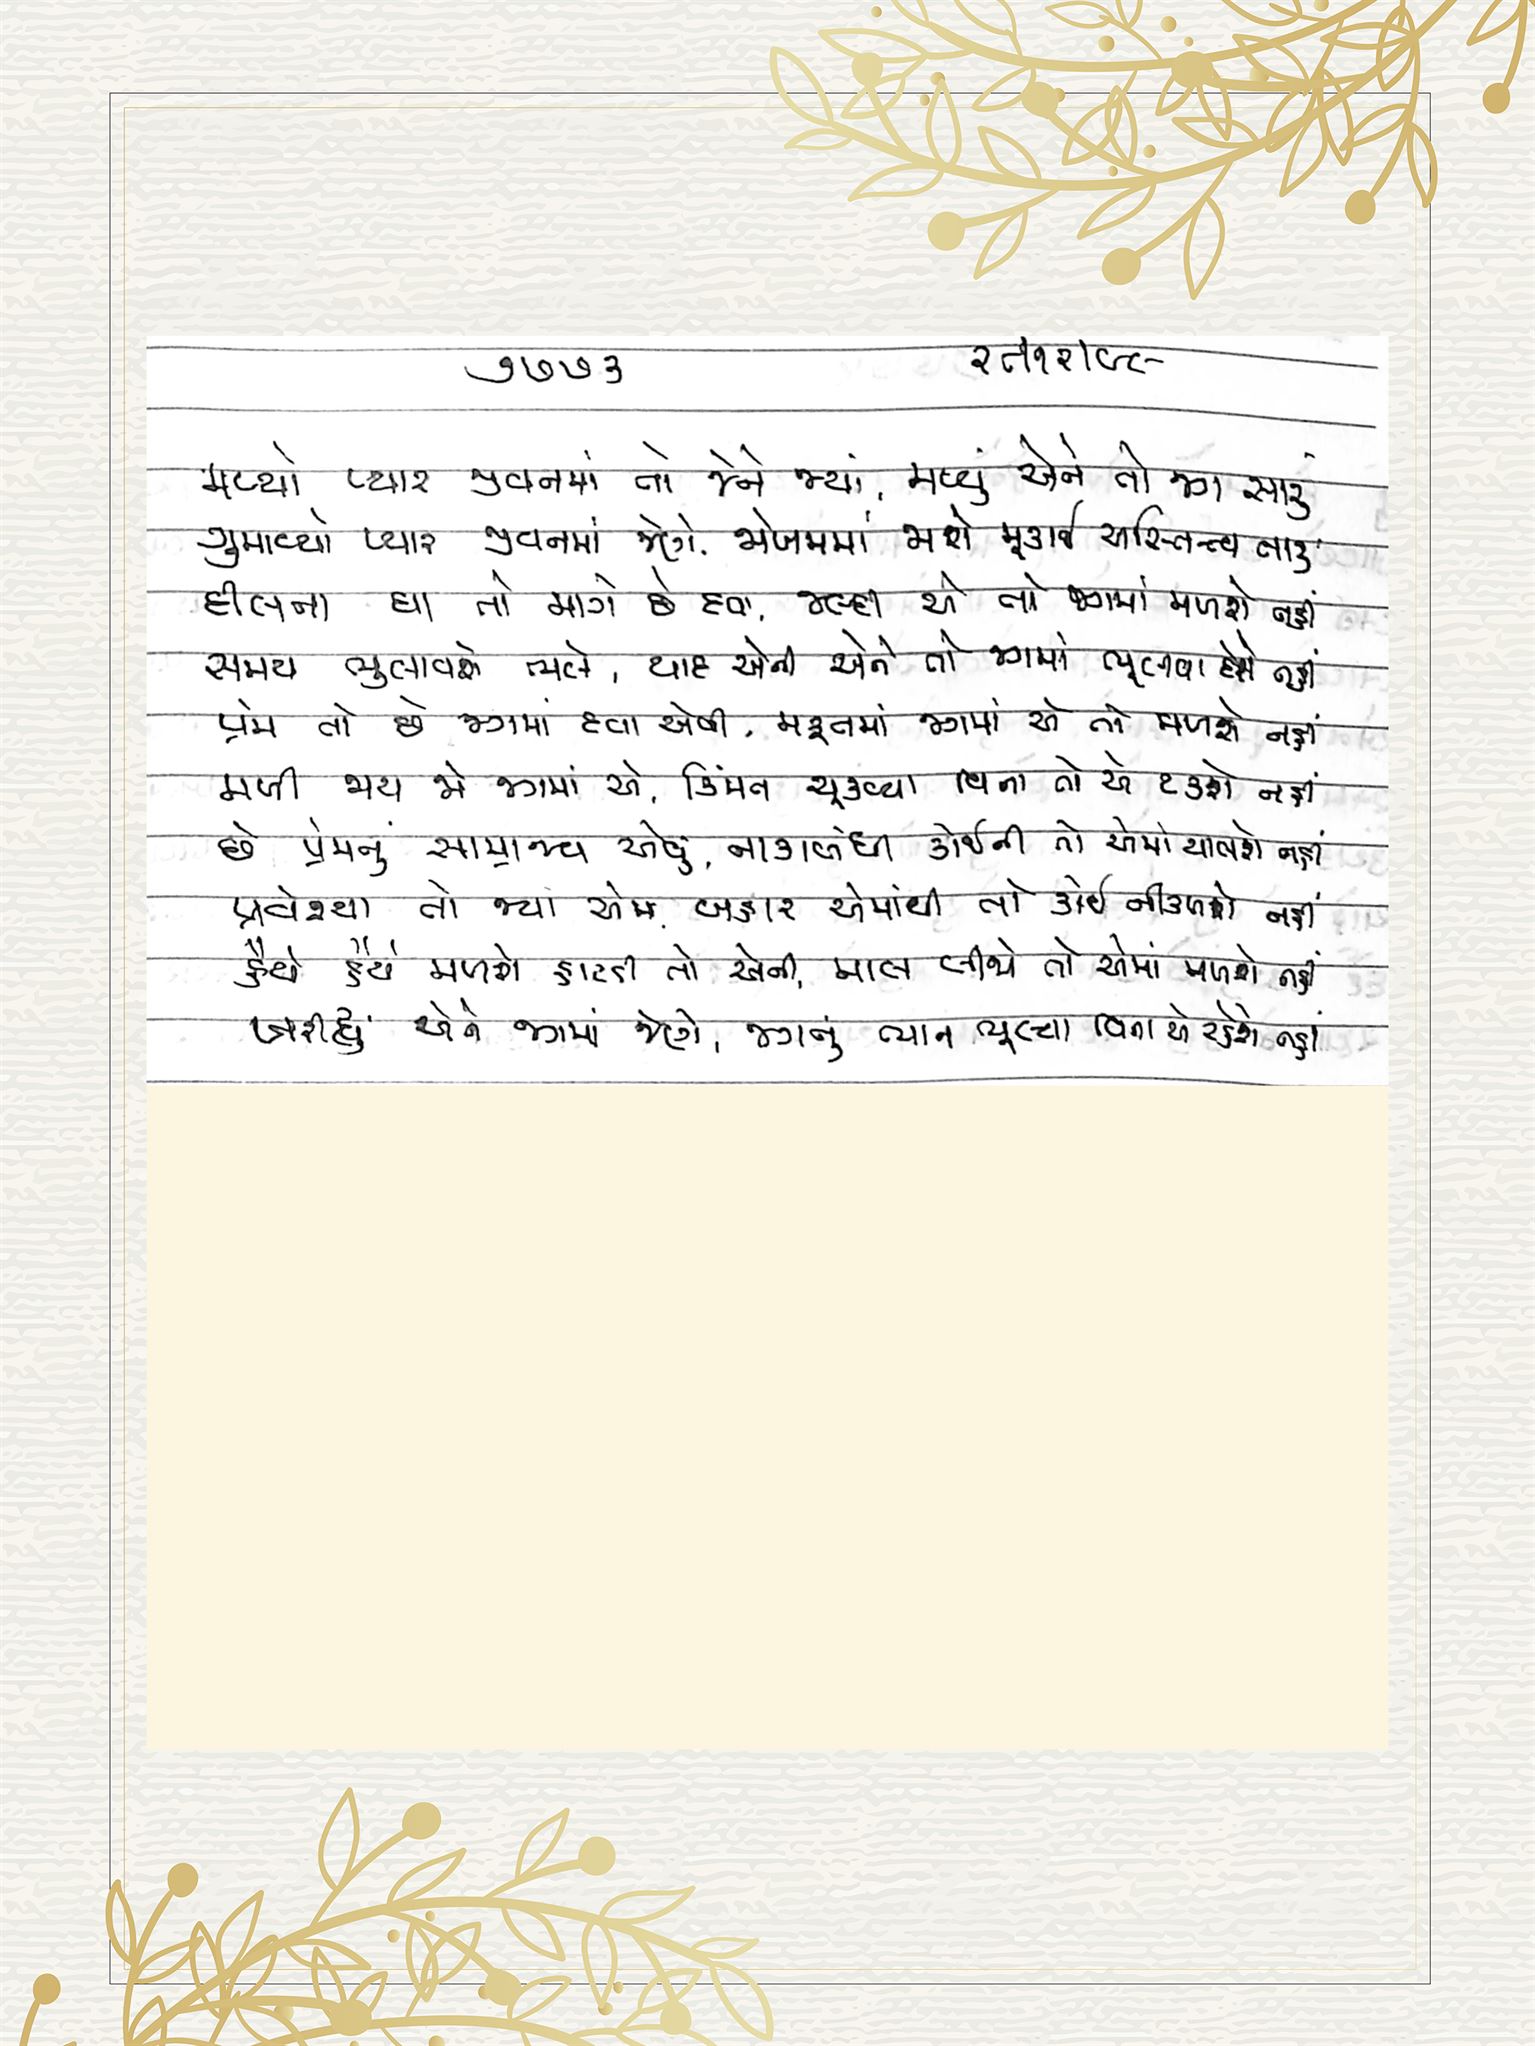 ૭૭૭૩
મળ્યો પ્યાર જીવનમાં તો જેને જ્યાં, મળ્યું એને તો જગ સારું
ગુમાવ્યો પ્યાર જીવનમાં જેણે, મુકાઈ અસ્તિત્વ તારું
દીલના ઘા તો માગે છે દવા, જલ્દી એ તો જગમાં મળશે નહીં
સમય ભુલાવશે ભલે, યાદ એની એને તો જગમાં ભૂલવા દેશે નહીં
પ્રેમ તો છે જગમાં દવા એવી, મફતમાં જગમાં એ તો મળશે નહીં
મળી જાય જો જગમાં એ, કિંમત ચૂકવ્યા વિના તો એ ટકશે નહીં
છે પ્રેમનું સામ્રાજ્ય એવું, નાકાબંધી કોઈની તો એમાં ચાલશે નહીં
પ્રવેશ્યા તો જ્યાં એમાં, બહાર એમાંથી તો કોઈ નીકળશે નહીં
હૈયે હૈયે મળશે હાટડી તો એની, માલ બીજો તો એમાં મળશે નહીં
ખરીદ્યું એને જગમાં જેણે, જગનું ભાન ભૂલ્યા વિના એ રહેશે નહીં